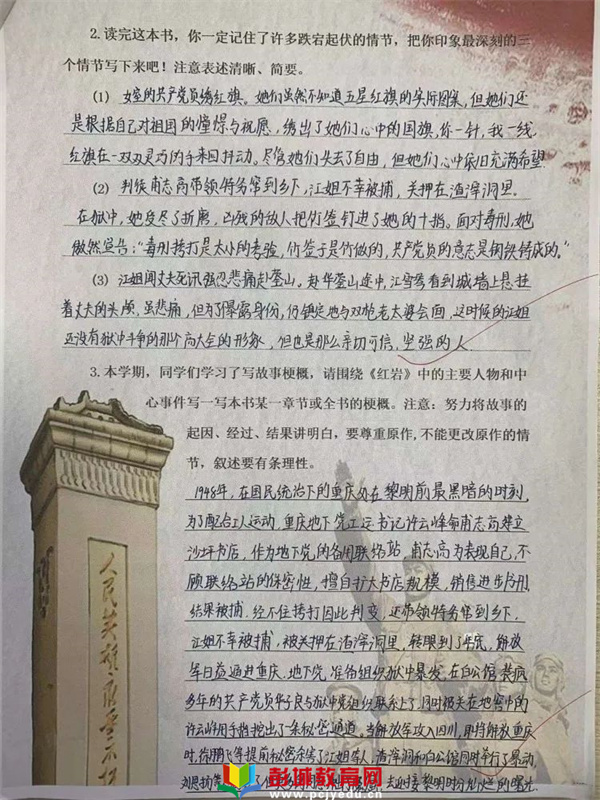 2. 读完这本书，你一定记住了许多跌宕起伏的情节，把你印象最深刻的三
个情节写下来吧！注意表述清晰、简要。
(1) 女室的共产党员绣红旗。她们虽然不知道五星红旗的实际图案，但她们还
是根据自己对祖国的憧憬与祝愿，绣出了她们心中的国旗，你一针，我一线，
红旗在一双双灵巧的手来回抖动。尽管她们失去了自由，但她们心中依旧充满希望.
(2) 判徒甫志高带领特务窜到乡下，江姐不幸被捕，关押在渣滓洞里。
在狱中，她受尽了折磨，凶残的敌人把竹签钉进了她的十指。面对毒刑，她
傲然宣告："毒刑拷打是太小的考验，竹签子是竹做的，共产党员的意志是钢铁铸成的。"
(3) 江姐闻丈夫死讯强忍悲痛赴华蓥山。赴华蓥山途中，江雪琴看到城墙上悬挂
着丈夫的头颅，虽悲痛，但为了暴露身份，仍镇定地与双枪老太婆会面，这时候的江姐
还没有狱中斗争的那个高大全的形象，但也是那么亲切可信，坚强的人.
3. 本学期，同学们学习了写故事梗概，请围绕《红岩》中的主要人物和中
心事件写一写本书某一章节或全书的梗概。注意：努力将故事的
起因、经过、结果讲明白，要尊重原作，不能更改原作的情
节，叙述要有条理性。
1948年，在国民统治下的重庆处在黎明前最黑暗的时刻，
为了配合工人运动，重庆地下党工运书记许云峰命甫志高建立
沙坪书店，作为地下党的备用联络站，甫志高为表现自己，不
顾联络站的保密性，擅自扩大书店规模，销售进步书刊，
结果被捕，经不住拷打因此判变，还带领特务窜到乡下，
江姐不幸被捕，被关押在渣滓洞里，转眼到了年底，解放
军日益逼进重庆，地下党，准备组织狱中暴发，在白公馆装疯
多年的共产党员华子良与狱中党组织联系上了，同时被关在地窖中的
许云峰用手指挖出了一条秘密通道。当解放军攻入四川，即将解放重庆
时，徐鹏飞等提前秘密杀害了江姐等人，渣滓洞和白公馆同时举行了暴动，
刘思扬等
去迎接黎明时分灿烂的曙光.
人民英雄
彭城教育网
www.pcjyedu.cn